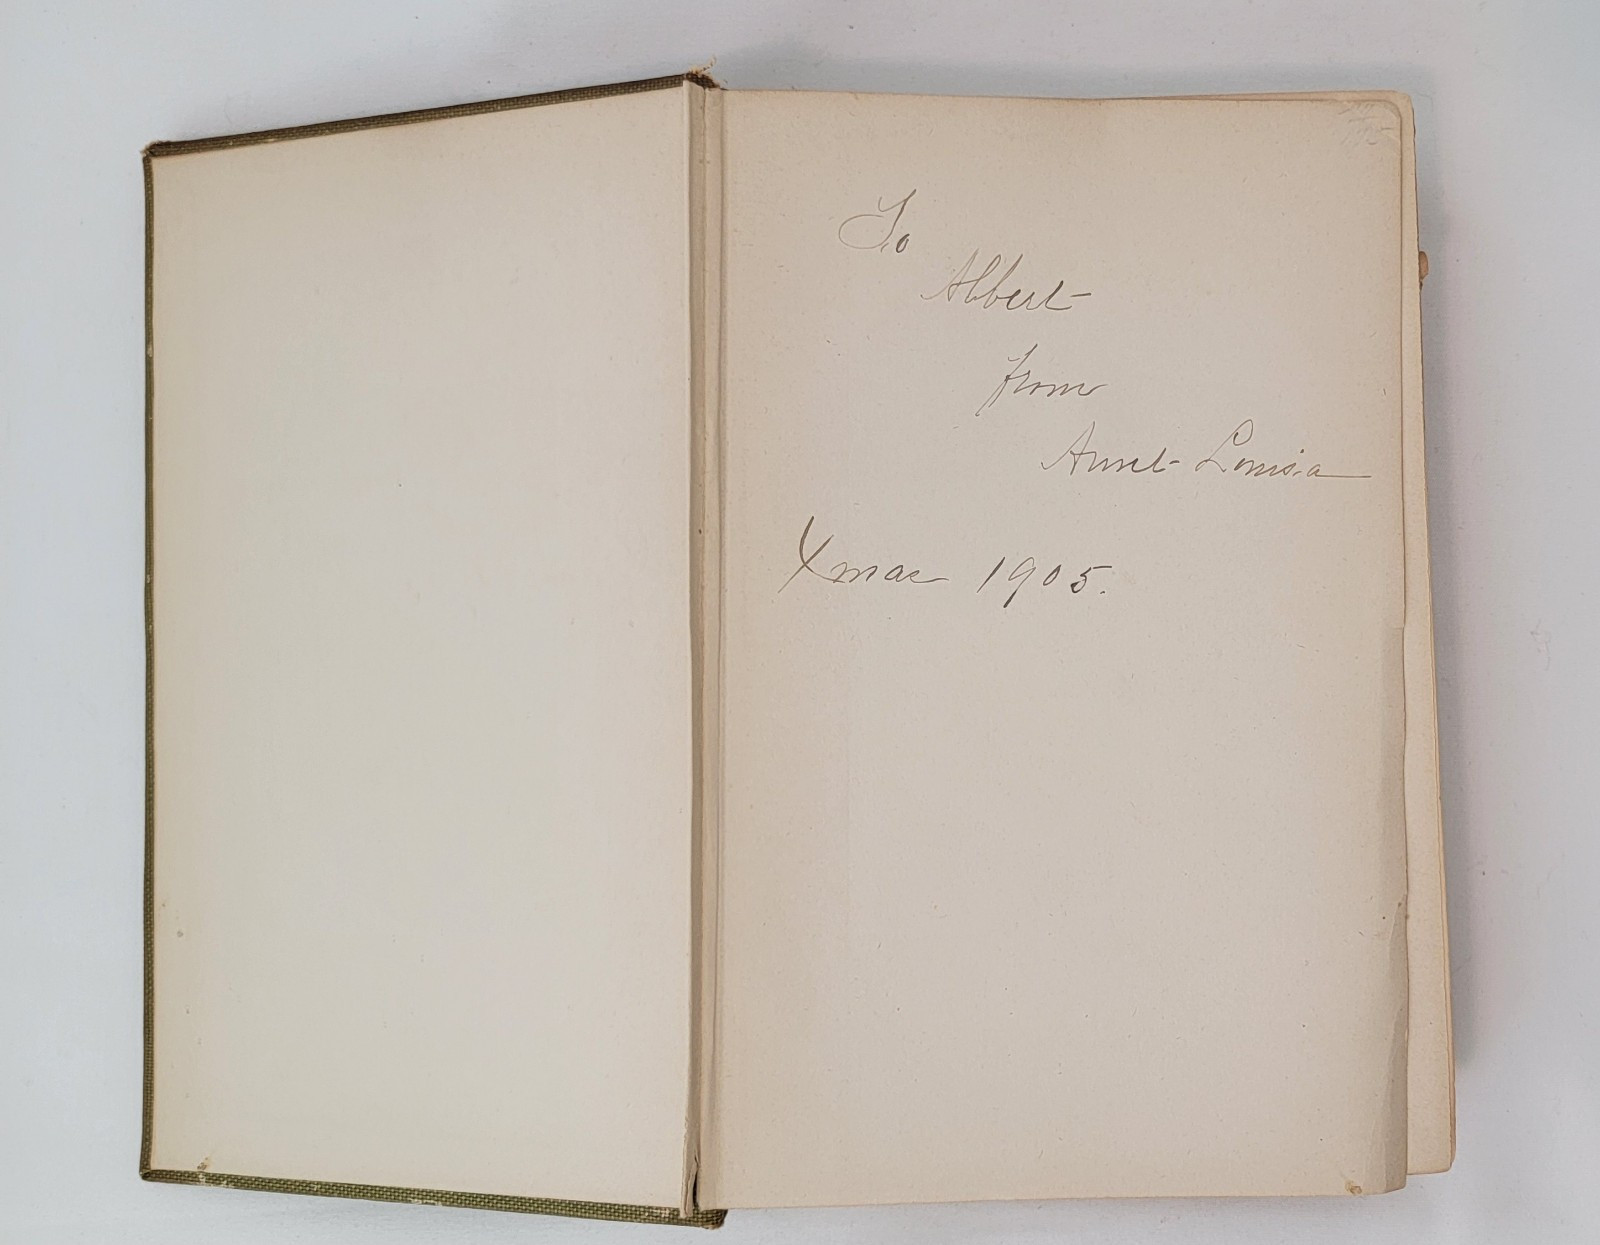 To
Albert
from
Aunt Louisa
Xmas 1905.